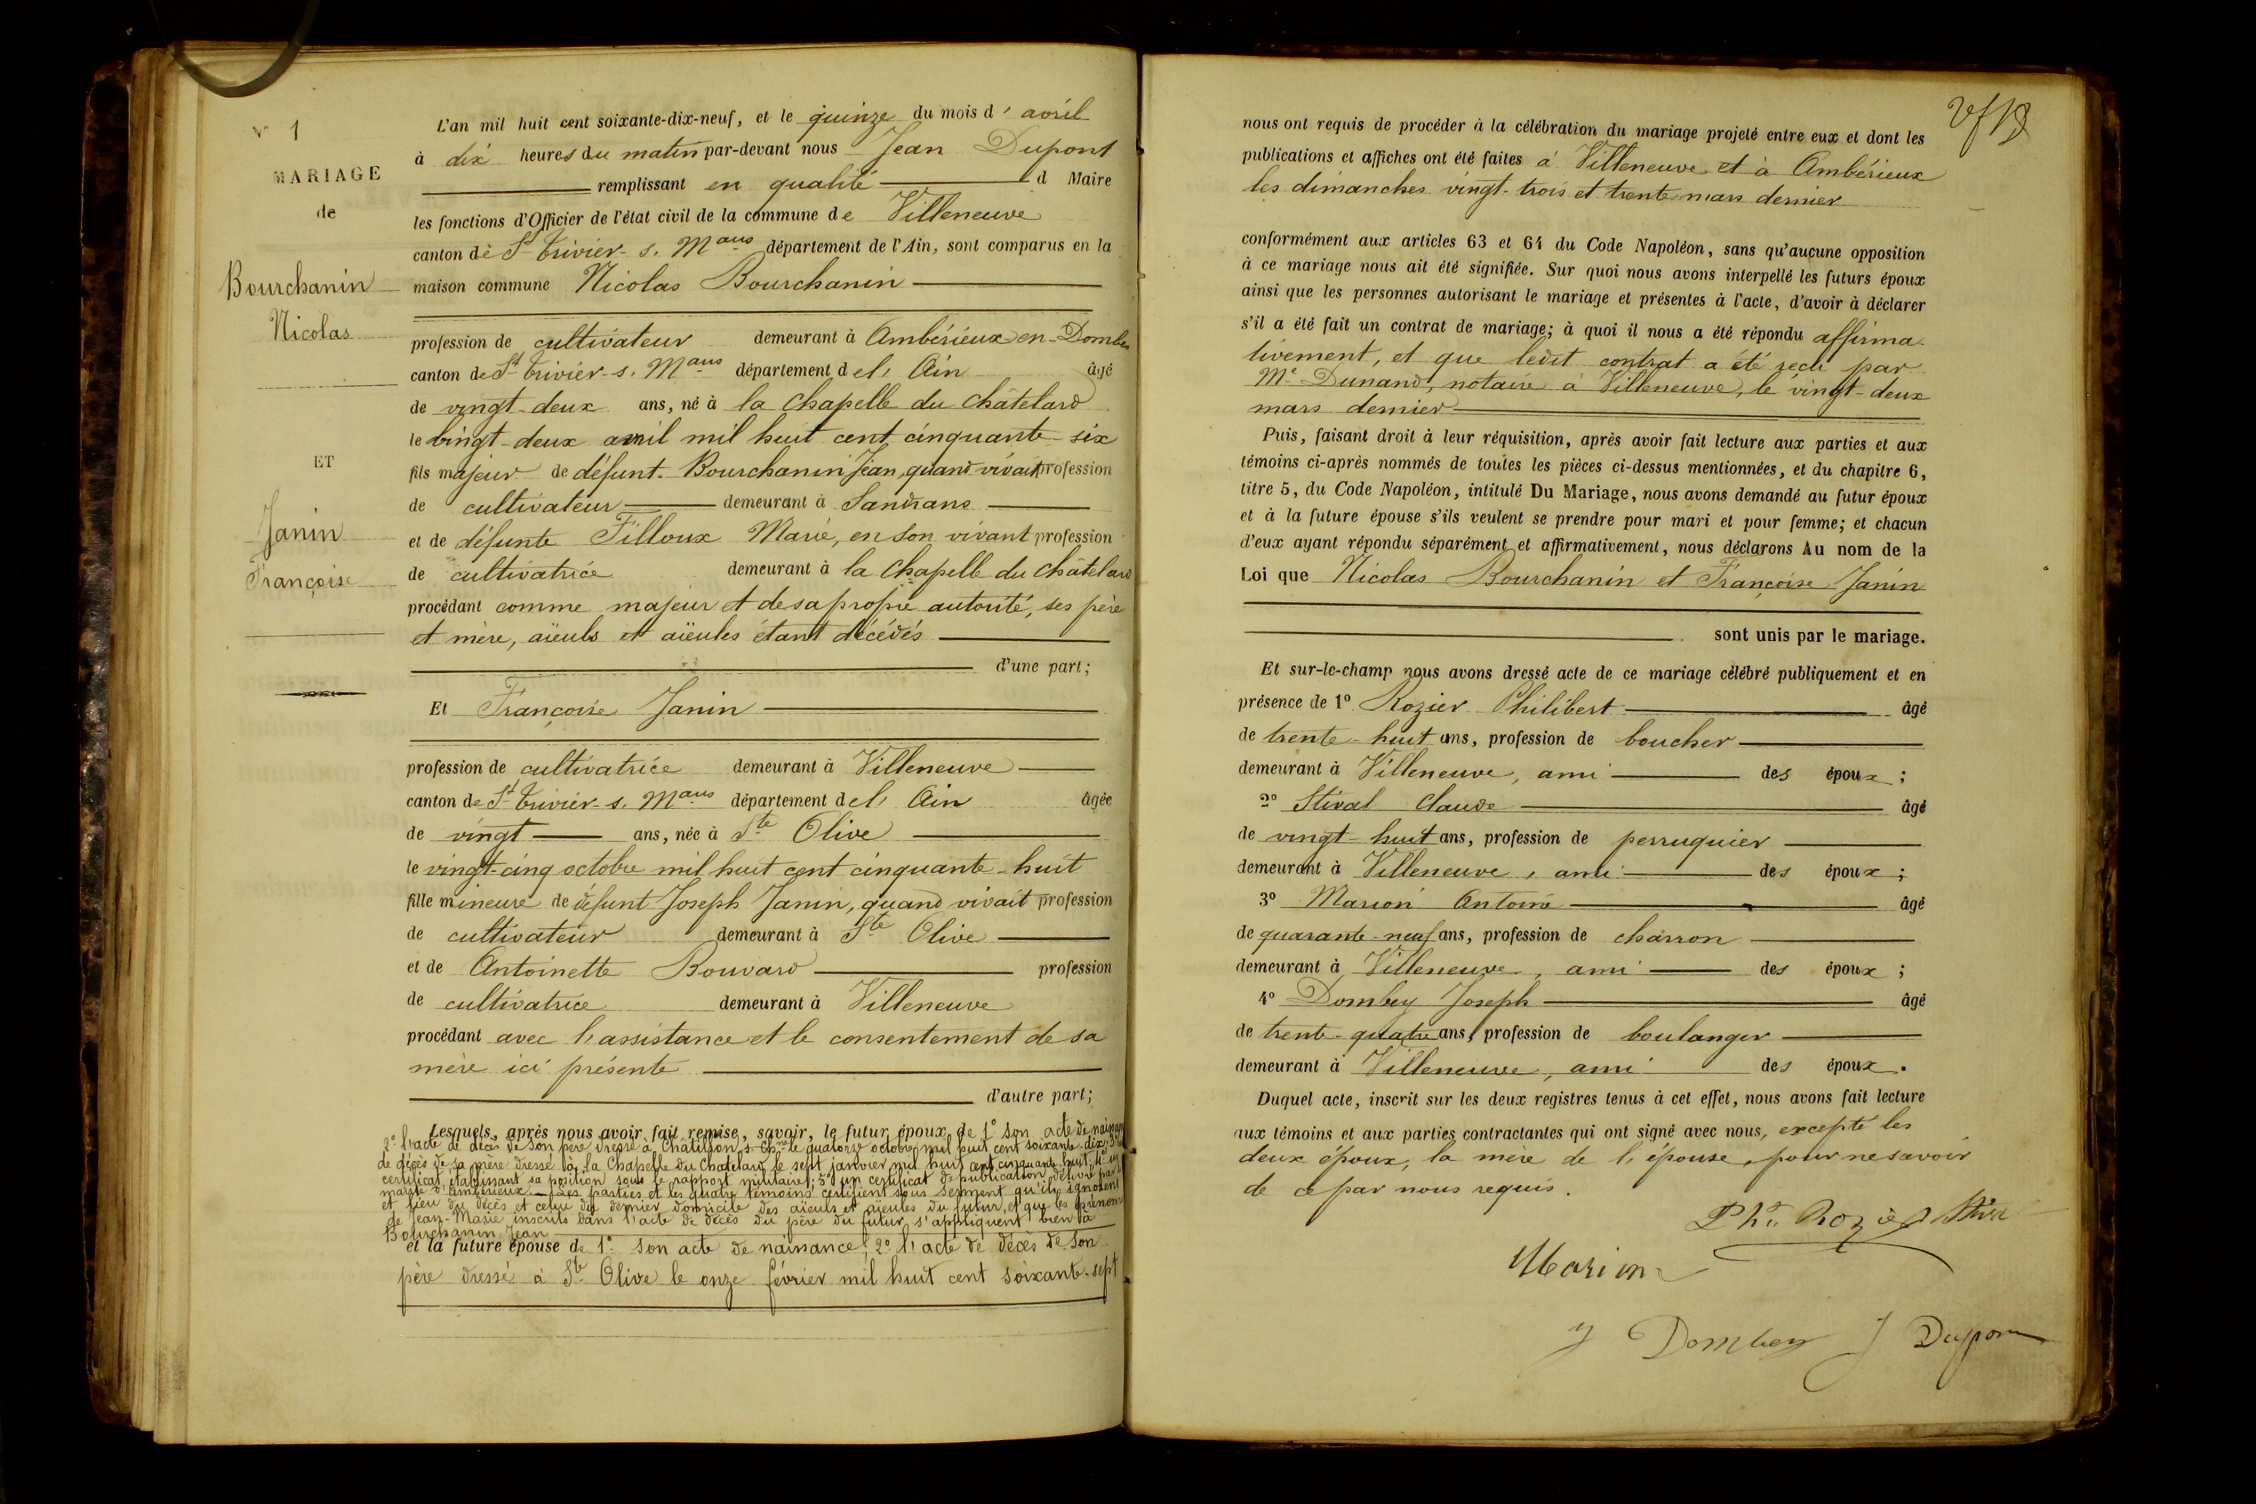 N° 1
MARIAGE
de
Bourchanin
Nicolas
ET
Janin
Françoise
L'an mil huit cent soixante-dix-neuf, et le quinze du mois d'avril
à dix heures du matin par-devant nous Jean Dupont
remplissant en qualité d Maire
les fonctions d'Officier de l'état civil de la commune de Villeneuve
canton de St Trivier-s. Mans département de l'Ain, sont comparus en la
maison commune Nicolas Bourchanin
profession de cultivateur demeurant à Ambérieux-en-Dombes
canton de St Trivier-s. Mans département de l'Ain âgé
de vingt-deux ans, né à la Chapelle du Châtelard
le vingt-deux avril mil huit cent cinquante-six
fils majeur de défunt Bourchanin Jean, quand vivait profession
de cultivateur demeurant à Sandrans
et de défunte Filloux Marie, en son vivant profession
de cultivatrice demeurant à la Chapelle du Châtelard
procédant comme majeur et de sa propre autorité, ses père
et mère, aïeuls et aïeules étant décédés
d'une part;
Et Françoise Janin
profession de cultivatrice demeurant à Villeneuve
canton de St Trivier-s. Mans département de l'Ain âgée
de vingt ans, née à Ste Olive
le vingt-cinq octobre mil huit cent cinquante-huit
fille mineure de défunt Joseph Janin, quand vivait profession
de cultivateur demeurant à Ste Olive
et de Antoinette Bouvard profession
de cultivatrice demeurant à Villeneuve
procédant avec l'assistance et le consentement de sa
mère ici présente
d'autre part;
Lesquels, après nous avoir fait remise, savoir, le futur époux de 1° son acte de naissance
2° l'acte de décès de son père dressé à Châtillon s. Chne le quatorze octobre mil huit cent soixante-dix; 3°
de décès de sa mère dressé à la Chapelle du Châtelard le sept janvier mil huit cent cinquante-huit; 4° un
certificat établissant sa position sous le rapport militaire; 5° un certificat de publication délivré par
mairie d'Ambérieux. Les parties et les quatre témoins certifient sous serment qu'ils ignorent
et lieu du décès et celui du dernier domicile des aïeuls et aïeules du futur, et que les prénoms
de Jean-Marie inscrits dans l'acte de décès du père du futur s'appliquent bien à
Bourchanin Jean
et la future épouse de 1° son acte de naissance; 2° l'acte de décès de son
père dressé à Ste Olive le onze février mil huit cent soixante-sept
nous ont requis de procéder à la célébration du mariage projeté entre eux et dont les
publications et affiches ont été faites à Villeneuve et à Ambérieux
les dimanches vingt-trois et trente mars dernier
conformément aux articles 63 et 64 du Code Napoléon, sans qu'aucune opposition
à ce mariage nous ait été signifiée. Sur quoi nous avons interpellé les futurs époux
ainsi que les personnes autorisant le mariage et présentes à l'acte, d'avoir à déclarer
s'il a été fait un contrat de mariage; à quoi il nous a été répondu affirma-
tivement, et que ledit contrat a été reçu par
Me Dunand, notaire à Villeneuve, le vingt-deux
mars dernier
Puis, faisant droit à leur réquisition, après avoir fait lecture aux parties et aux
témoins ci-après nommés de toutes les pièces ci-dessus mentionnées, et du chapitre 6,
titre 5, du Code Napoléon, intitulé Du Mariage, nous avons demandé au futur époux
et à la future épouse s'ils veulent se prendre pour mari et pour femme; et chacun
d'eux ayant répondu séparément et affirmativement, nous déclarons Au nom de la
Loi que Nicolas Bourchanin et Françoise Janin
sont unis par le mariage.
Et sur-le-champ nous avons dressé acte de ce mariage célébré publiquement et en
présence de 1° Rozier Philibert âgé
de trente-huit ans, profession de boucher
demeurant à Villeneuve, ami des époux;
2° Stival Claude âgé
de vingt-huit ans, profession de perruquier
demeurant à Villeneuve, ami des époux;
3° Marion Antoine âgé
de quarante-neuf ans, profession de charron
demeurant à Villeneuve, ami des époux;
4° Dombey Joseph âgé
de trente-quatre ans, profession de boulanger
demeurant à Villeneuve, ami des époux.
Duquel acte, inscrit sur les deux registres tenus à cet effet, nous avons fait lecture
aux témoins et aux parties contractantes qui ont signé avec nous, excepté les
deux époux, la mère de l'épouse, pour ne savoir
de ce par nous requis.
Rozier
Marion
J Dombey J Dupont